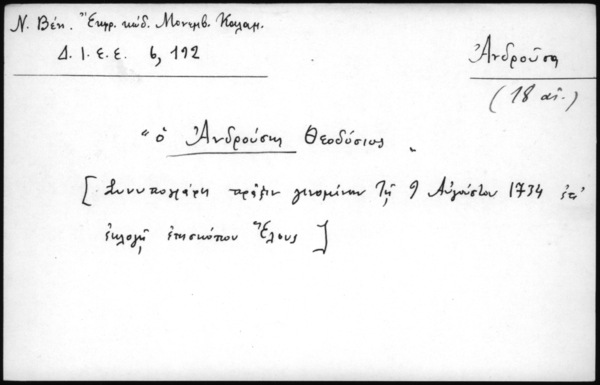 Ν. Βέη. Ἔκφρ. κώδ. Μονεμβ. Καλαμ.
Δ. Ι. Ε. Ε. 6, 192
Ἀνδροῦσα
(18 αἰ.)
"ὁ Ἀνδρούσης Θεοδόσιος"
[Συνυπογράφει πρᾶξιν γενομένην τῇ 9 Αὐγούστου 1734 ἐπ'
ἐκλογῇ ἐπισκόπου Ἕλους]